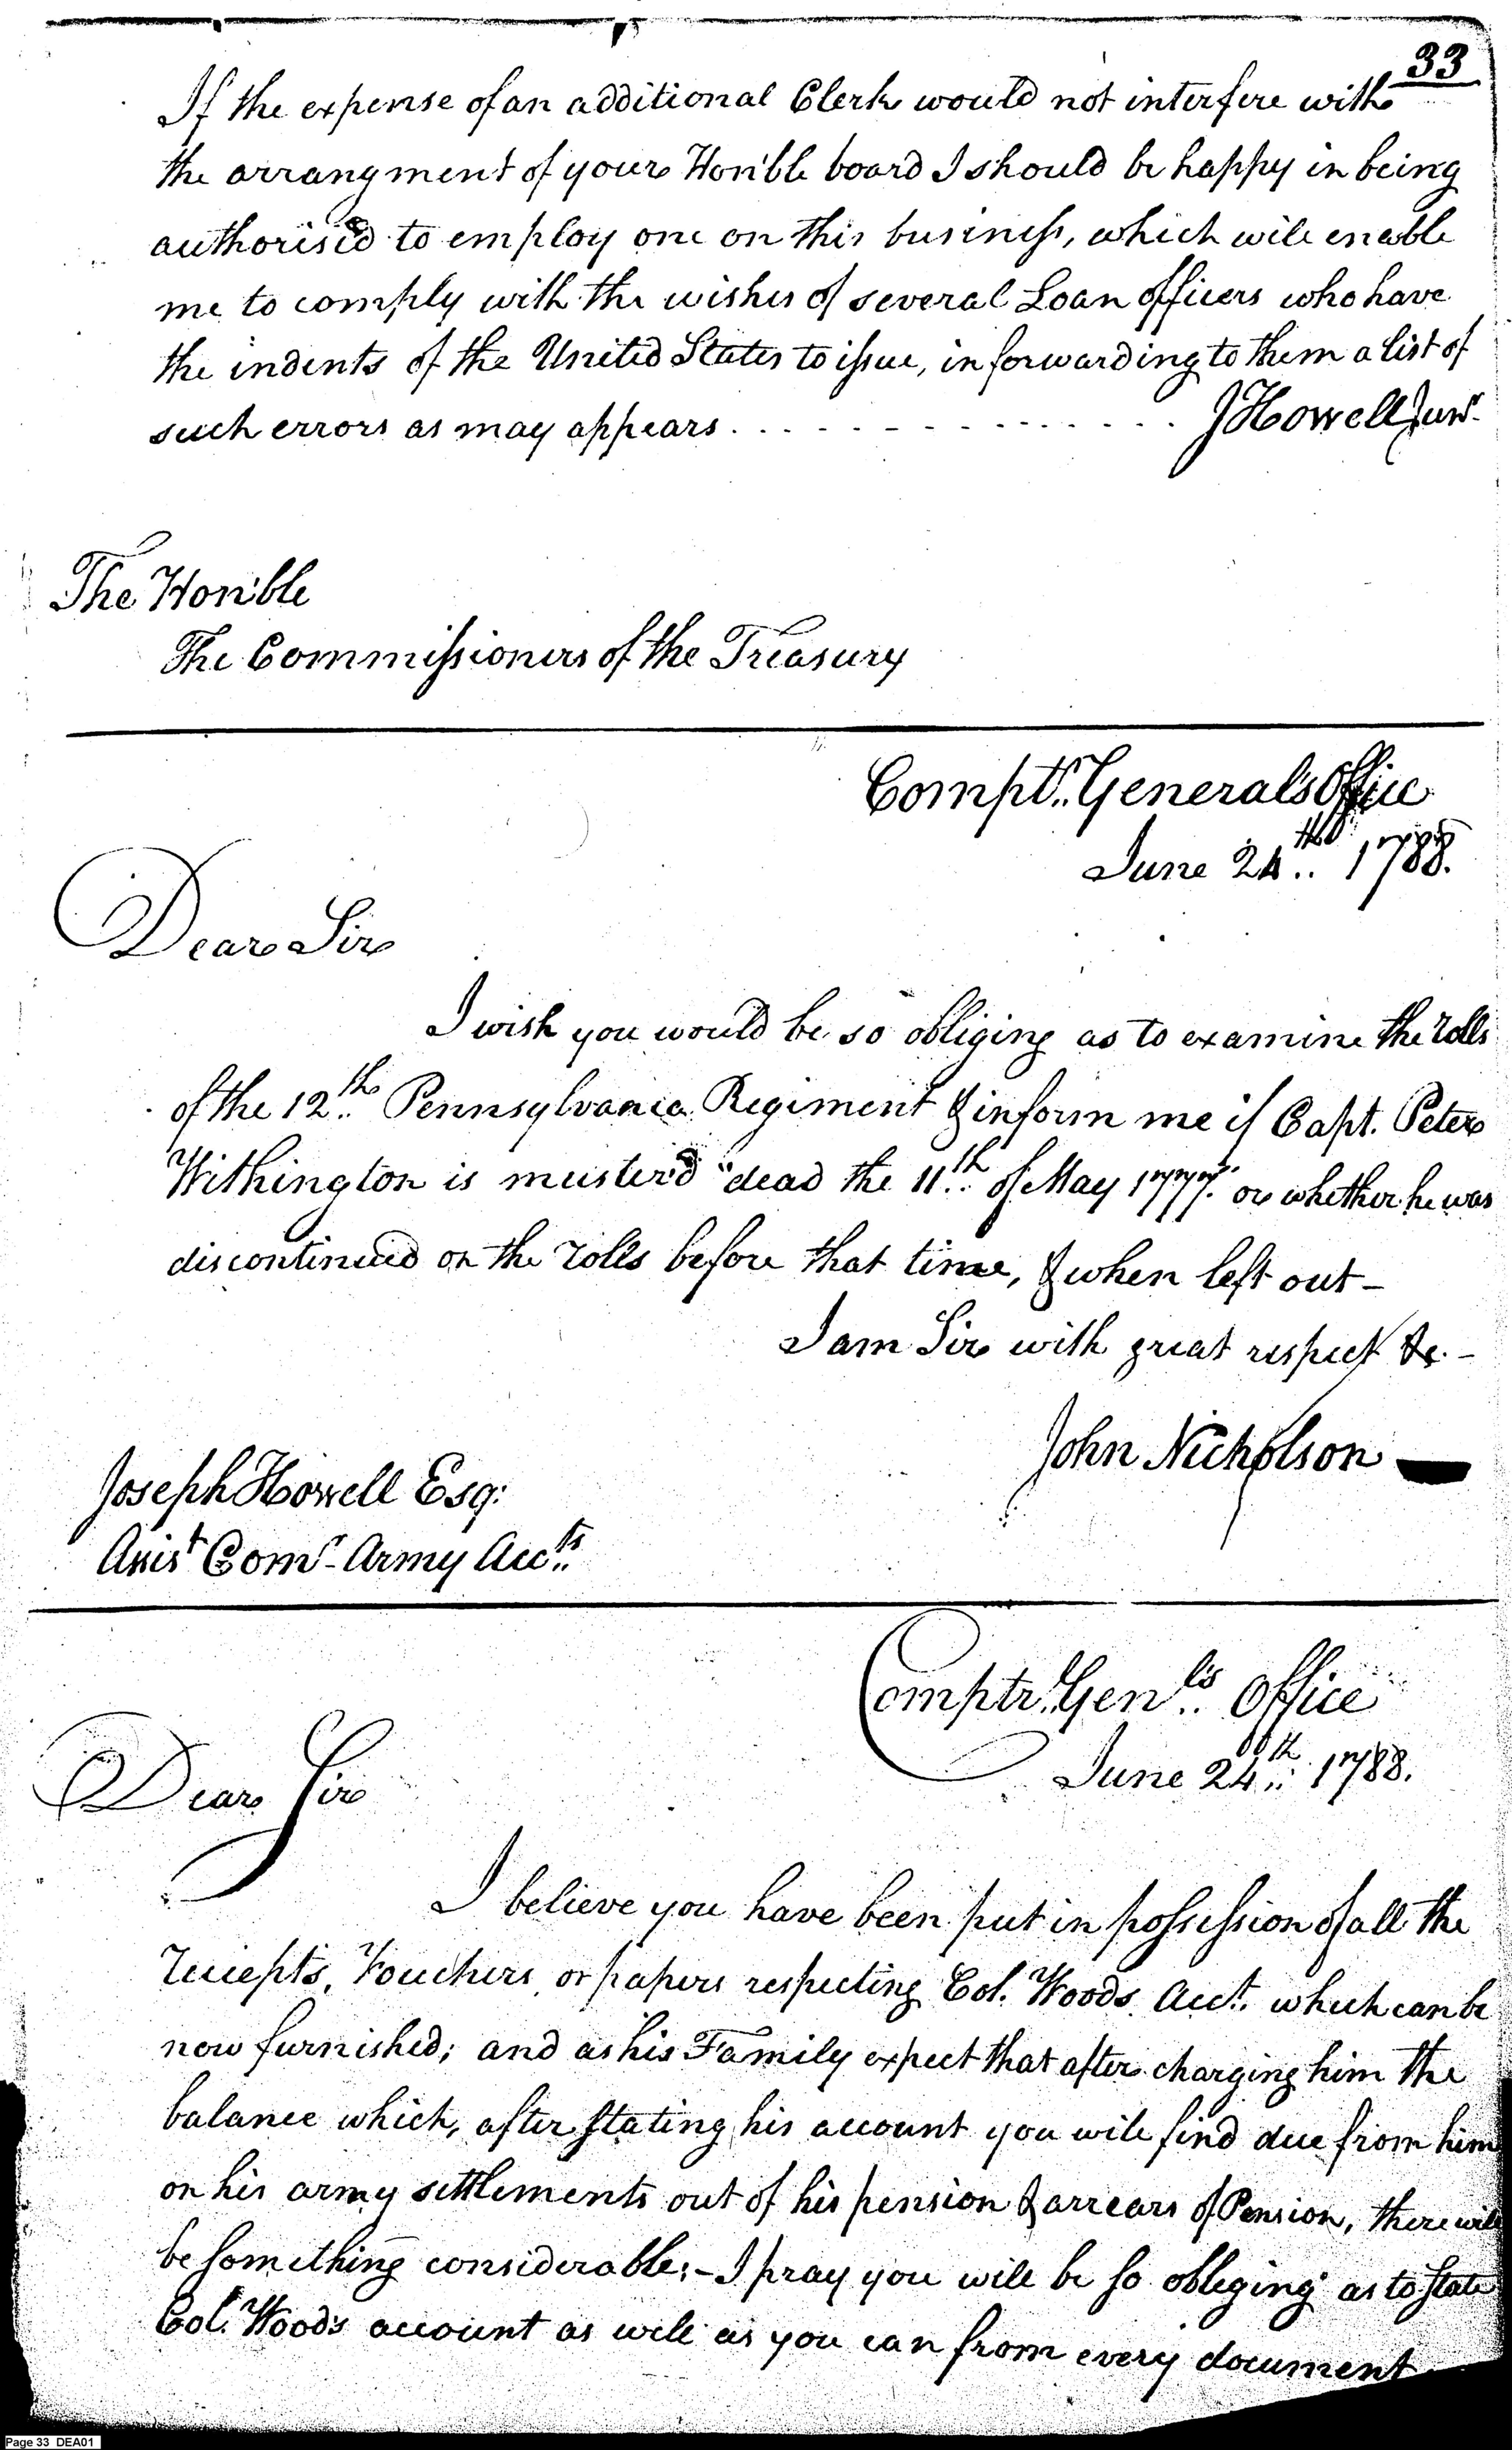 33
If the expense of an additional Clerk would not interfere with
the arrangment of your Hon'ble board I should be happy in being
authoris'd to employ one on this business, which will enable
me to comply with the wishes of several Loan officers who have
the indents of the United States to issue, in forwarding to them a list of
such errors as may appear . . . . . . . . . . . . . . . JHowell Junr.
The Hon'ble
The Commissioners of the Treasury
Comptr. General's Office
June 24th 1788.
Dear Sir
I wish you would be so obliging as to examine the rolls
of the 12th Pennsylvania Regiment & inform me if Capt. Peter
Withington is muster'd "dead the 11th of May 1777" or whether he was
discontinued on the rolls before that time, & when left out -
I am Sir with great respect &c. -
John Nicholson
Joseph Howell Esq:
Assist Comr. Army Accts
Comptr. Genls Office
June 24th 1788.
Dear Sir
I believe you have been put in possession of all the
receipts, Vouchers, or papers respecting Col. Woods Acct. which can be
now furnished; and as his Family expect that after charging him the
balance which, after stating his account you will find due from him
on his army settlements out of his pension & arrears of Pension, there will
be something considerable; - I pray you will be so obliging as to state
Col. Wood's account as well as you can from every document
Page 33 DEA01